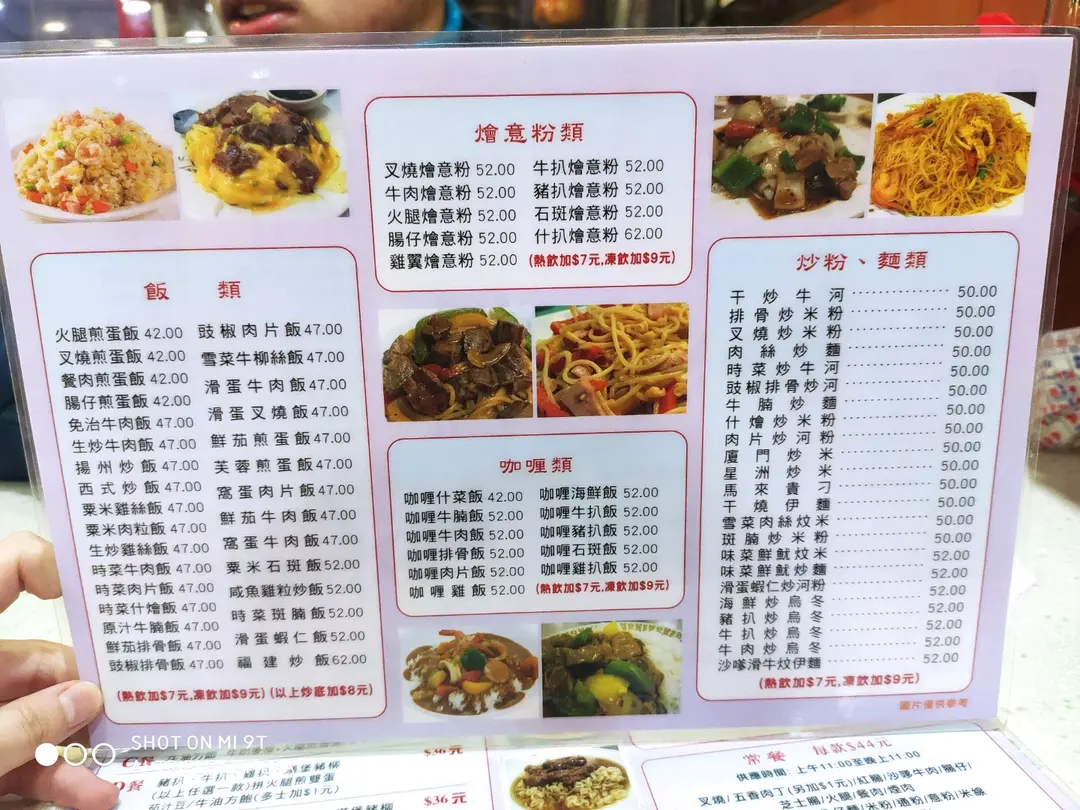 燴意粉類
叉燒燴意粉 52.00 牛扒燴意粉 52.00
牛肉燴意粉 52.00 豬扒燴意粉 52.00
火腿燴意粉 52.00 石斑燴意粉 52.00
腸仔燴意粉 52.00 什扒燴意粉 62.00
雞翼燴意粉 52.00 (熱飲加$7元,凍飲加$9元)
飯 類
火腿煎蛋飯 42.00 豉椒肉片飯 47.00
叉燒煎蛋飯 42.00 雪菜牛柳絲飯 47.00
餐肉煎蛋飯 42.00 滑蛋牛肉飯 47.00
腸仔煎蛋飯 42.00 滑蛋叉燒飯 47.00
免治牛肉飯 47.00 鮮茄煎蛋飯 47.00
生炒牛肉飯 47.00 芙蓉煎蛋飯 47.00
揚州炒飯 47.00 窩蛋肉片飯 47.00
西式炒飯 47.00 鮮茄牛肉飯 47.00
粟米雞絲飯 47.00 窩蛋牛肉飯 47.00
粟米肉粒飯 47.00 粟米石斑飯 52.00
生炒雞絲飯 47.00 咸魚雞粒炒飯 52.00
時菜牛肉飯 47.00 時菜斑腩飯 52.00
時菜肉片飯 47.00 滑蛋蝦仁飯 52.00
時菜什燴飯 47.00 福建炒飯 62.00
原汁牛腩飯 47.00
鮮茄排骨飯 47.00
豉椒排骨飯 47.00
(熱飲加$7元,凍飲加$9元) (以上炒底加$8元)
咖喱類
咖喱什菜飯 42.00 咖喱海鮮飯 52.00
咖喱牛腩飯 52.00 咖喱牛扒飯 52.00
咖喱牛肉飯 52.00 咖喱豬扒飯 52.00
咖喱排骨飯 52.00 咖喱石斑飯 52.00
咖喱肉片飯 52.00 咖喱雞扒飯 52.00
咖喱雞飯 52.00 (熱飲加$7元,凍飲加$9元)
炒粉、麵類
干炒牛河 50.00
排骨炒米粉 50.00
叉燒炒米粉 50.00
肉絲炒麵 50.00
時菜炒牛河 50.00
豉椒排骨炒河 50.00
牛腩炒麵 50.00
什燴炒米粉 50.00
肉片炒河粉 50.00
廈門炒米 50.00
星洲炒米 50.00
馬來貴刁 50.00
干燒伊麵 50.00
雪菜肉絲炆米 50.00
斑腩炒米粉 50.00
味菜鮮魷炆米 52.00
味菜鮮魷炒麵 52.00
滑蛋蝦仁炒河粉 52.00
海鮮炒烏冬 52.00
豬扒炒烏冬 52.00
牛扒炒烏冬 52.00
牛肉炒烏冬 52.00
沙嗲滑牛炆伊麵 52.00
(熱飲加$7元,凍飲加$9元)
圖片僅供參考
SHOT ON MI 9T
C餐 $36元
D餐 豬扒、牛扒、雞扒、漢堡豬柳
(以上任選一款)拼火腿煎雙蛋
茄汁豆/牛油方飽(多士加$1元) $36元
常餐 每款$44元
供應時間: 上午11:00至晚上11:00
叉燒/五香肉丁(另加$1元)/紅腸/沙嗲牛肉/腸仔/
芝士腸/火腿/餐肉/煙肉